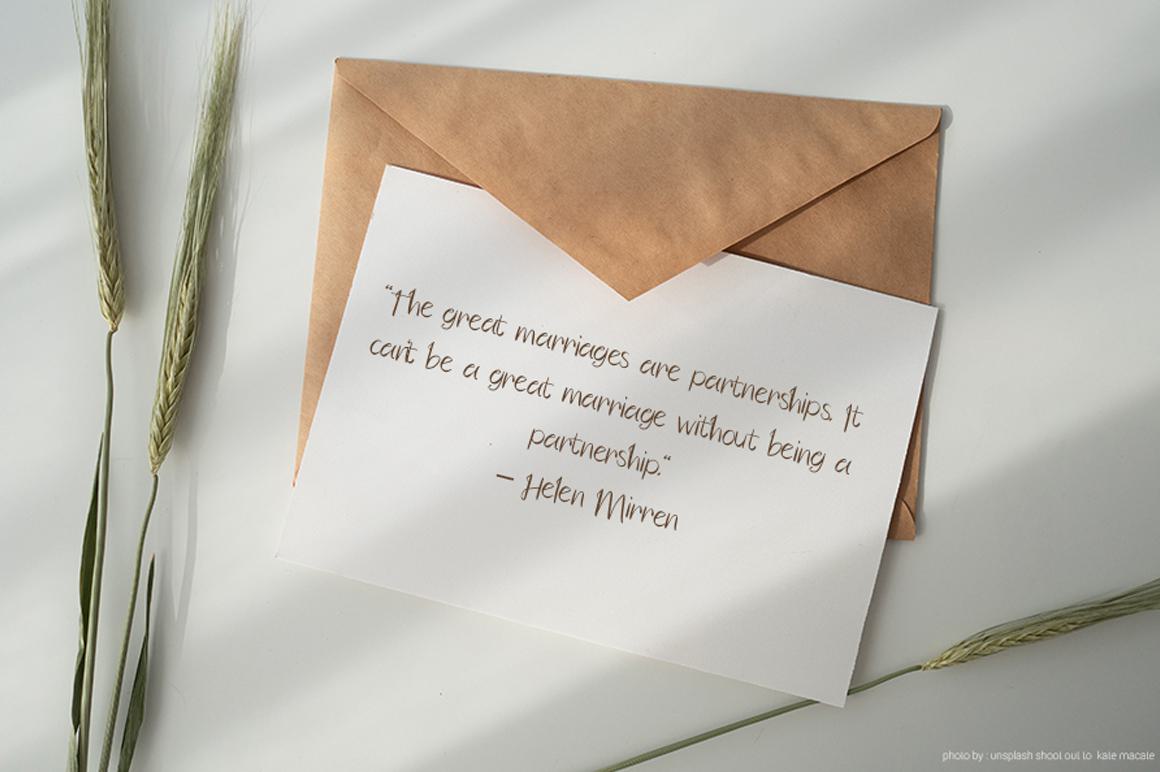 “The great marriages are partnerships. It
can't be a great marriage without being a
partnership.“
– Helen Mirren
photo by : unsplash shoot out to kate macate